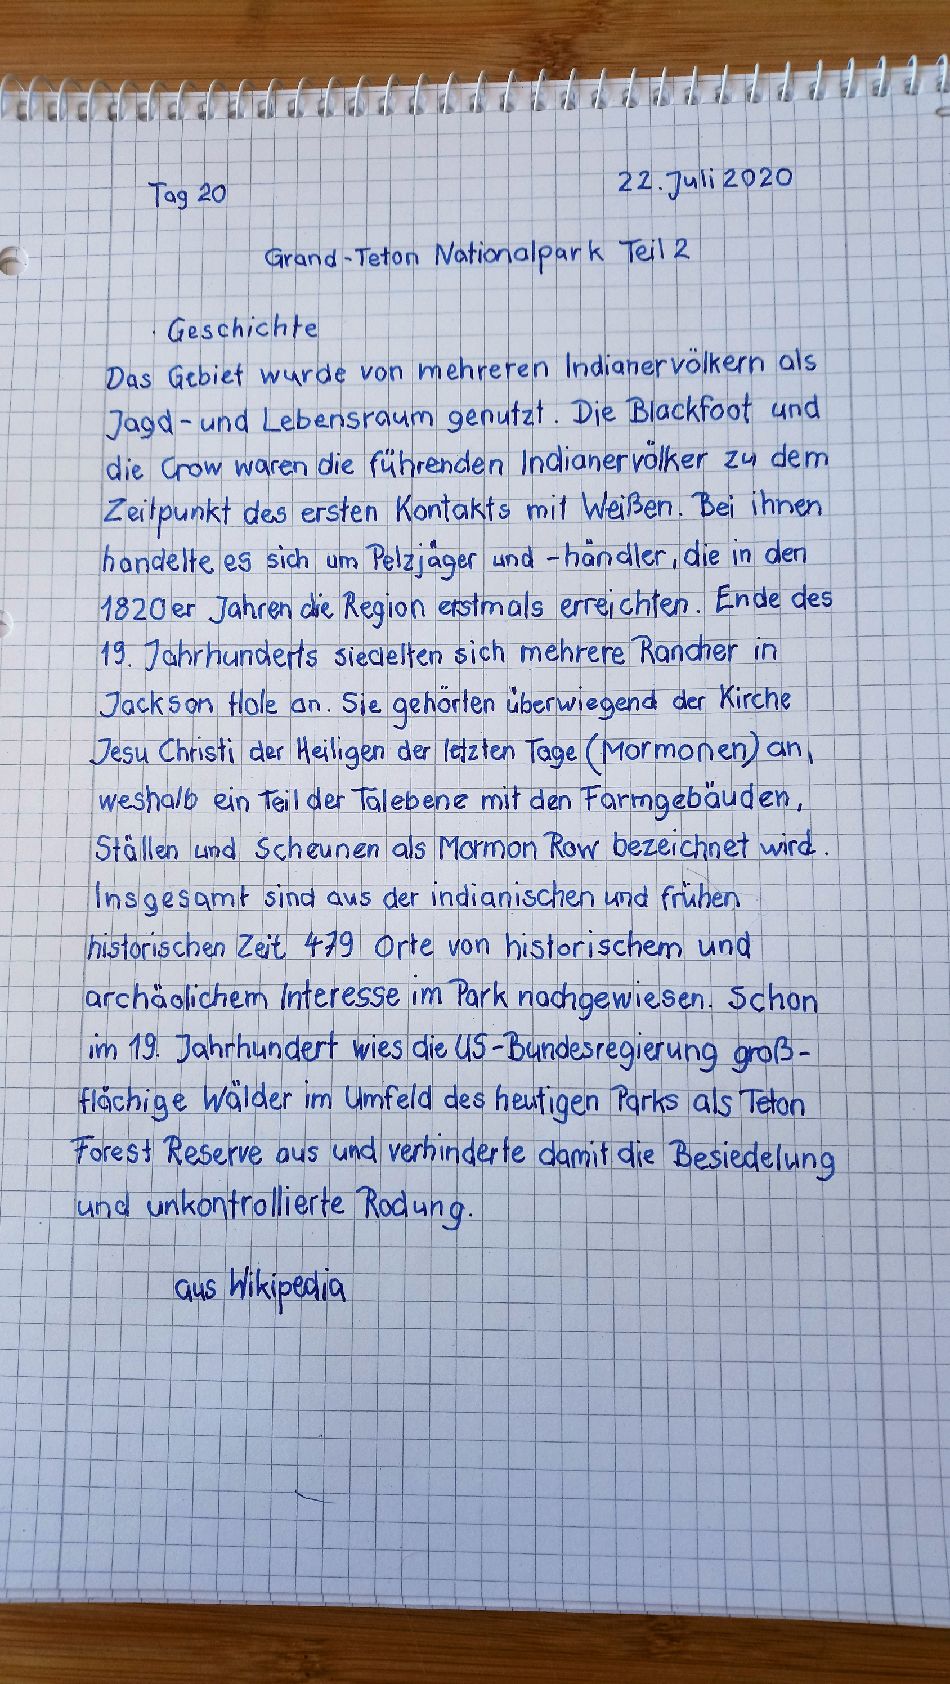 Tag 20
22. Juli 2020
Grand-Teton Nationalpark Teil 2
Geschichte
Das Gebiet wurde von mehreren Indianervölkern als
Jagd- und Lebensraum genutzt. Die Blackfoot und
die Crow waren die führenden Indianervölker zu dem
Zeitpunkt des ersten Kontakts mit Weißen. Bei ihnen
handelte es sich um Pelzjäger und -händler, die in den
1820er Jahren die Region erstmals erreichten. Ende des
19. Jahrhunderts siedelten sich mehrere Rancher in
Jackson Hole an. Sie gehörten überwiegend der Kirche
Jesu Christi der Heiligen der letzten Tage (Mormonen) an,
weshalb ein Teil der Talebene mit den Farmgebäuden,
Ställen und Scheunen als Mormon Row bezeichnet wird.
Insgesamt sind aus der indianischen und frühen
historischen Zeit 479 Orte von historischem und
archäolichem Interesse im Park nachgewiesen. Schon
im 19. Jahrhundert wies die US-Bundesregierung groß-
flächige Wälder im Umfeld des heutigen Parks als Teton
Forest Reserve aus und verhinderte damit die Besiedelung
und unkontrollierte Rodung.
aus Wikipedia